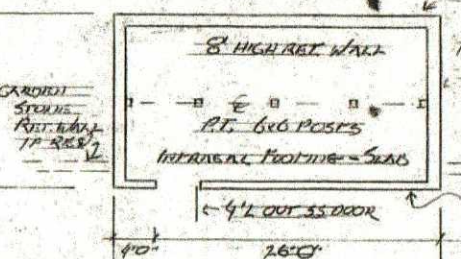 8' HIGH RET WALL
GARDEN
STONE
RET. WALL
IF REQ'
℄
P.T. 6x6 POSTS
INTRAGAL FOOTING - SLAB
4'L OUT SS DOOR
4'0"
26'0"